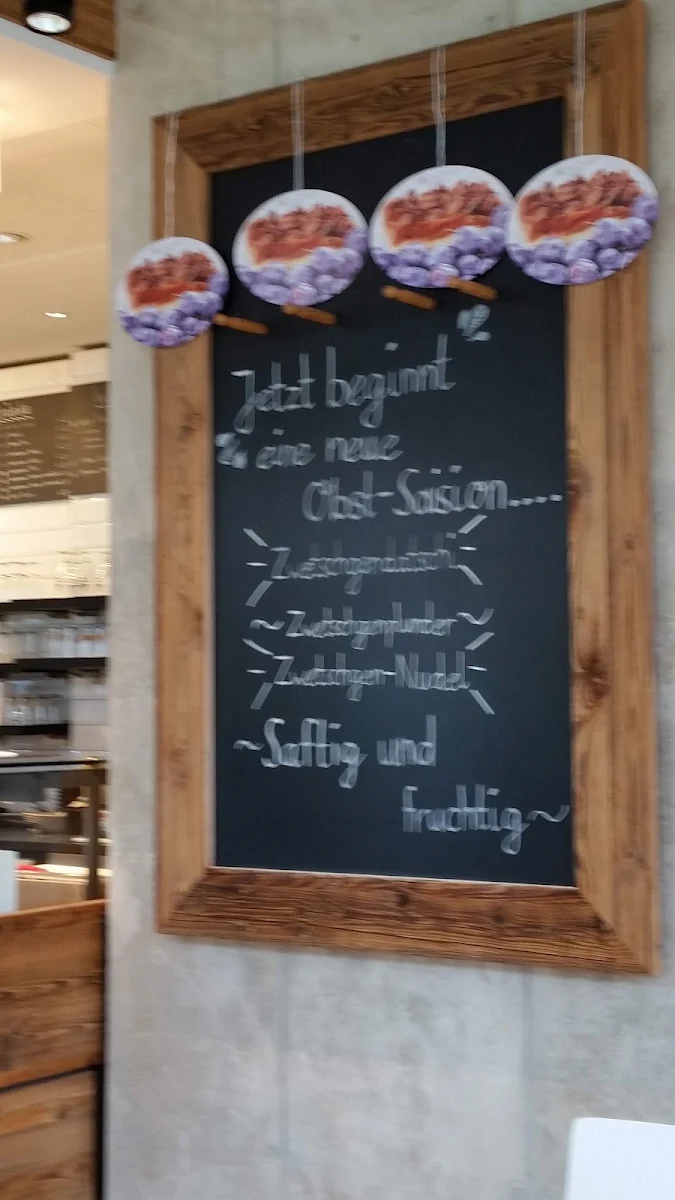 Jetzt beginnt
eine neue
Obst-Saision....
Zwetschgendatschi
~Zwetschgenplunder~
Zwetschgen-Nudel
~Saftig und
fruchtig~